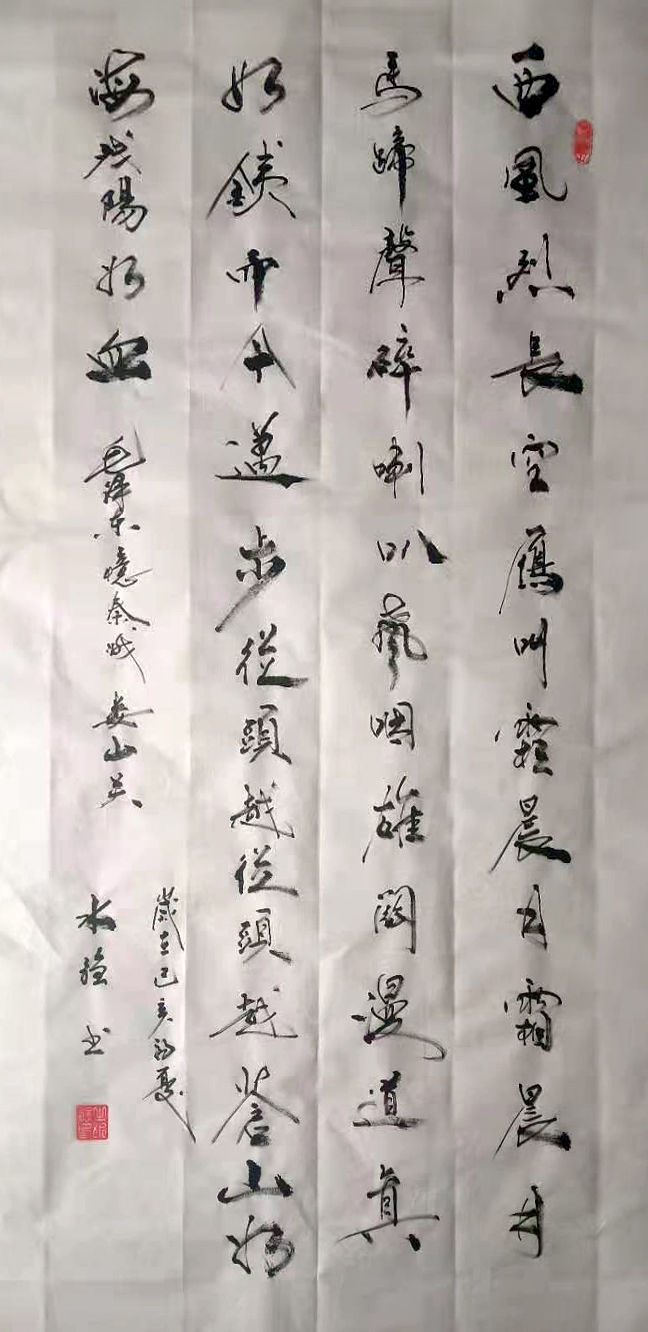 西風烈長空鴈叫霜晨月霜晨月
馬蹄聲碎喇叭聲咽雄關漫道真
如銕而今邁步從頭越從頭越蒼山如
海残陽如血 毛澤东憶秦娥 婁山关
歲在己亥初夏
水強书